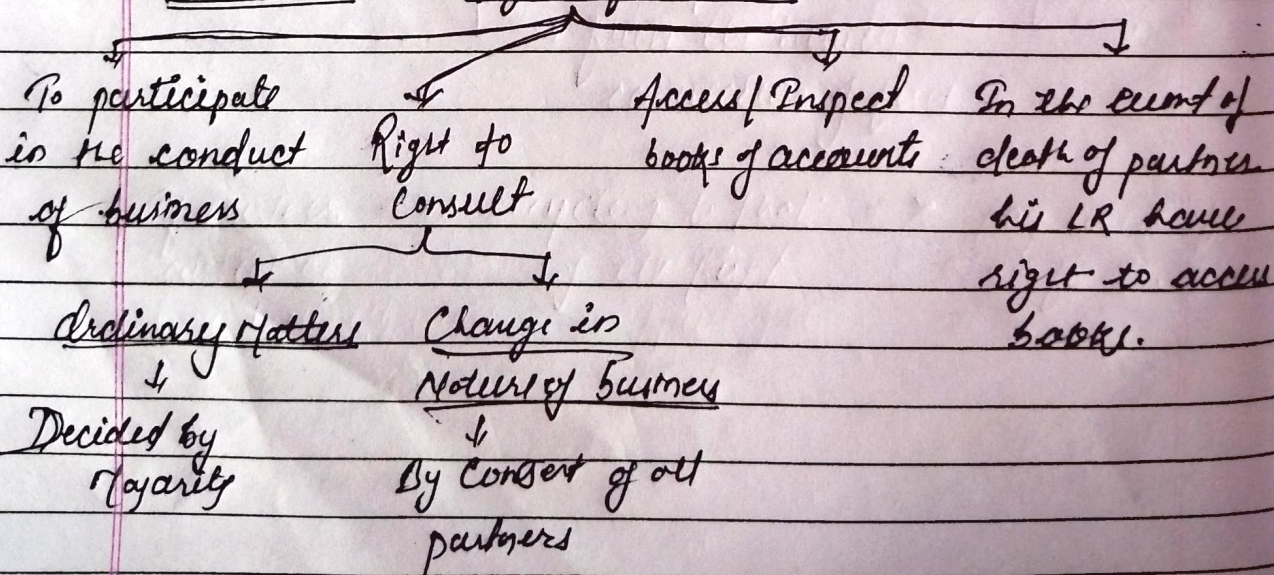 To participate
in the conduct
of business
Right to
Consult
Access/Inspect
books of accounts
In the event of
death of partner
his LR have
right to access
books.
Ordinary Matters
Decided by
Majority
Change in
Nature of business
By Consent of all
partners